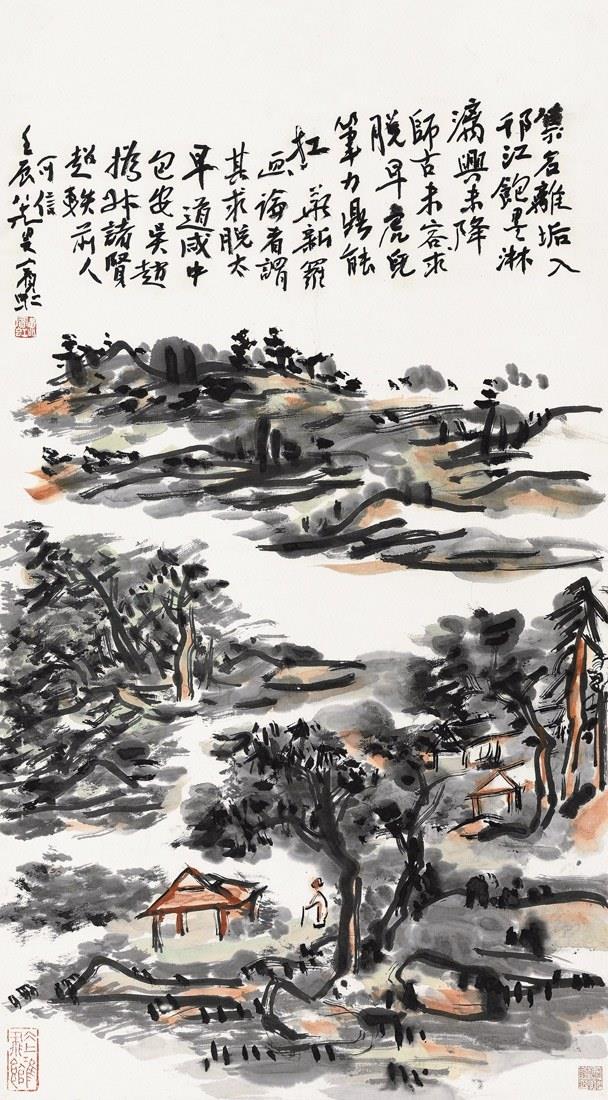 集名離垢入
邗江飽墨淋
漓興未降
師古未容求
脫早虎兒
筆力鼎能
扛 華新羅
画論者謂
其求脫太
早道咸中
包安吳趙
撝叔諸賢
超軼前人
可信
壬辰 賓虹